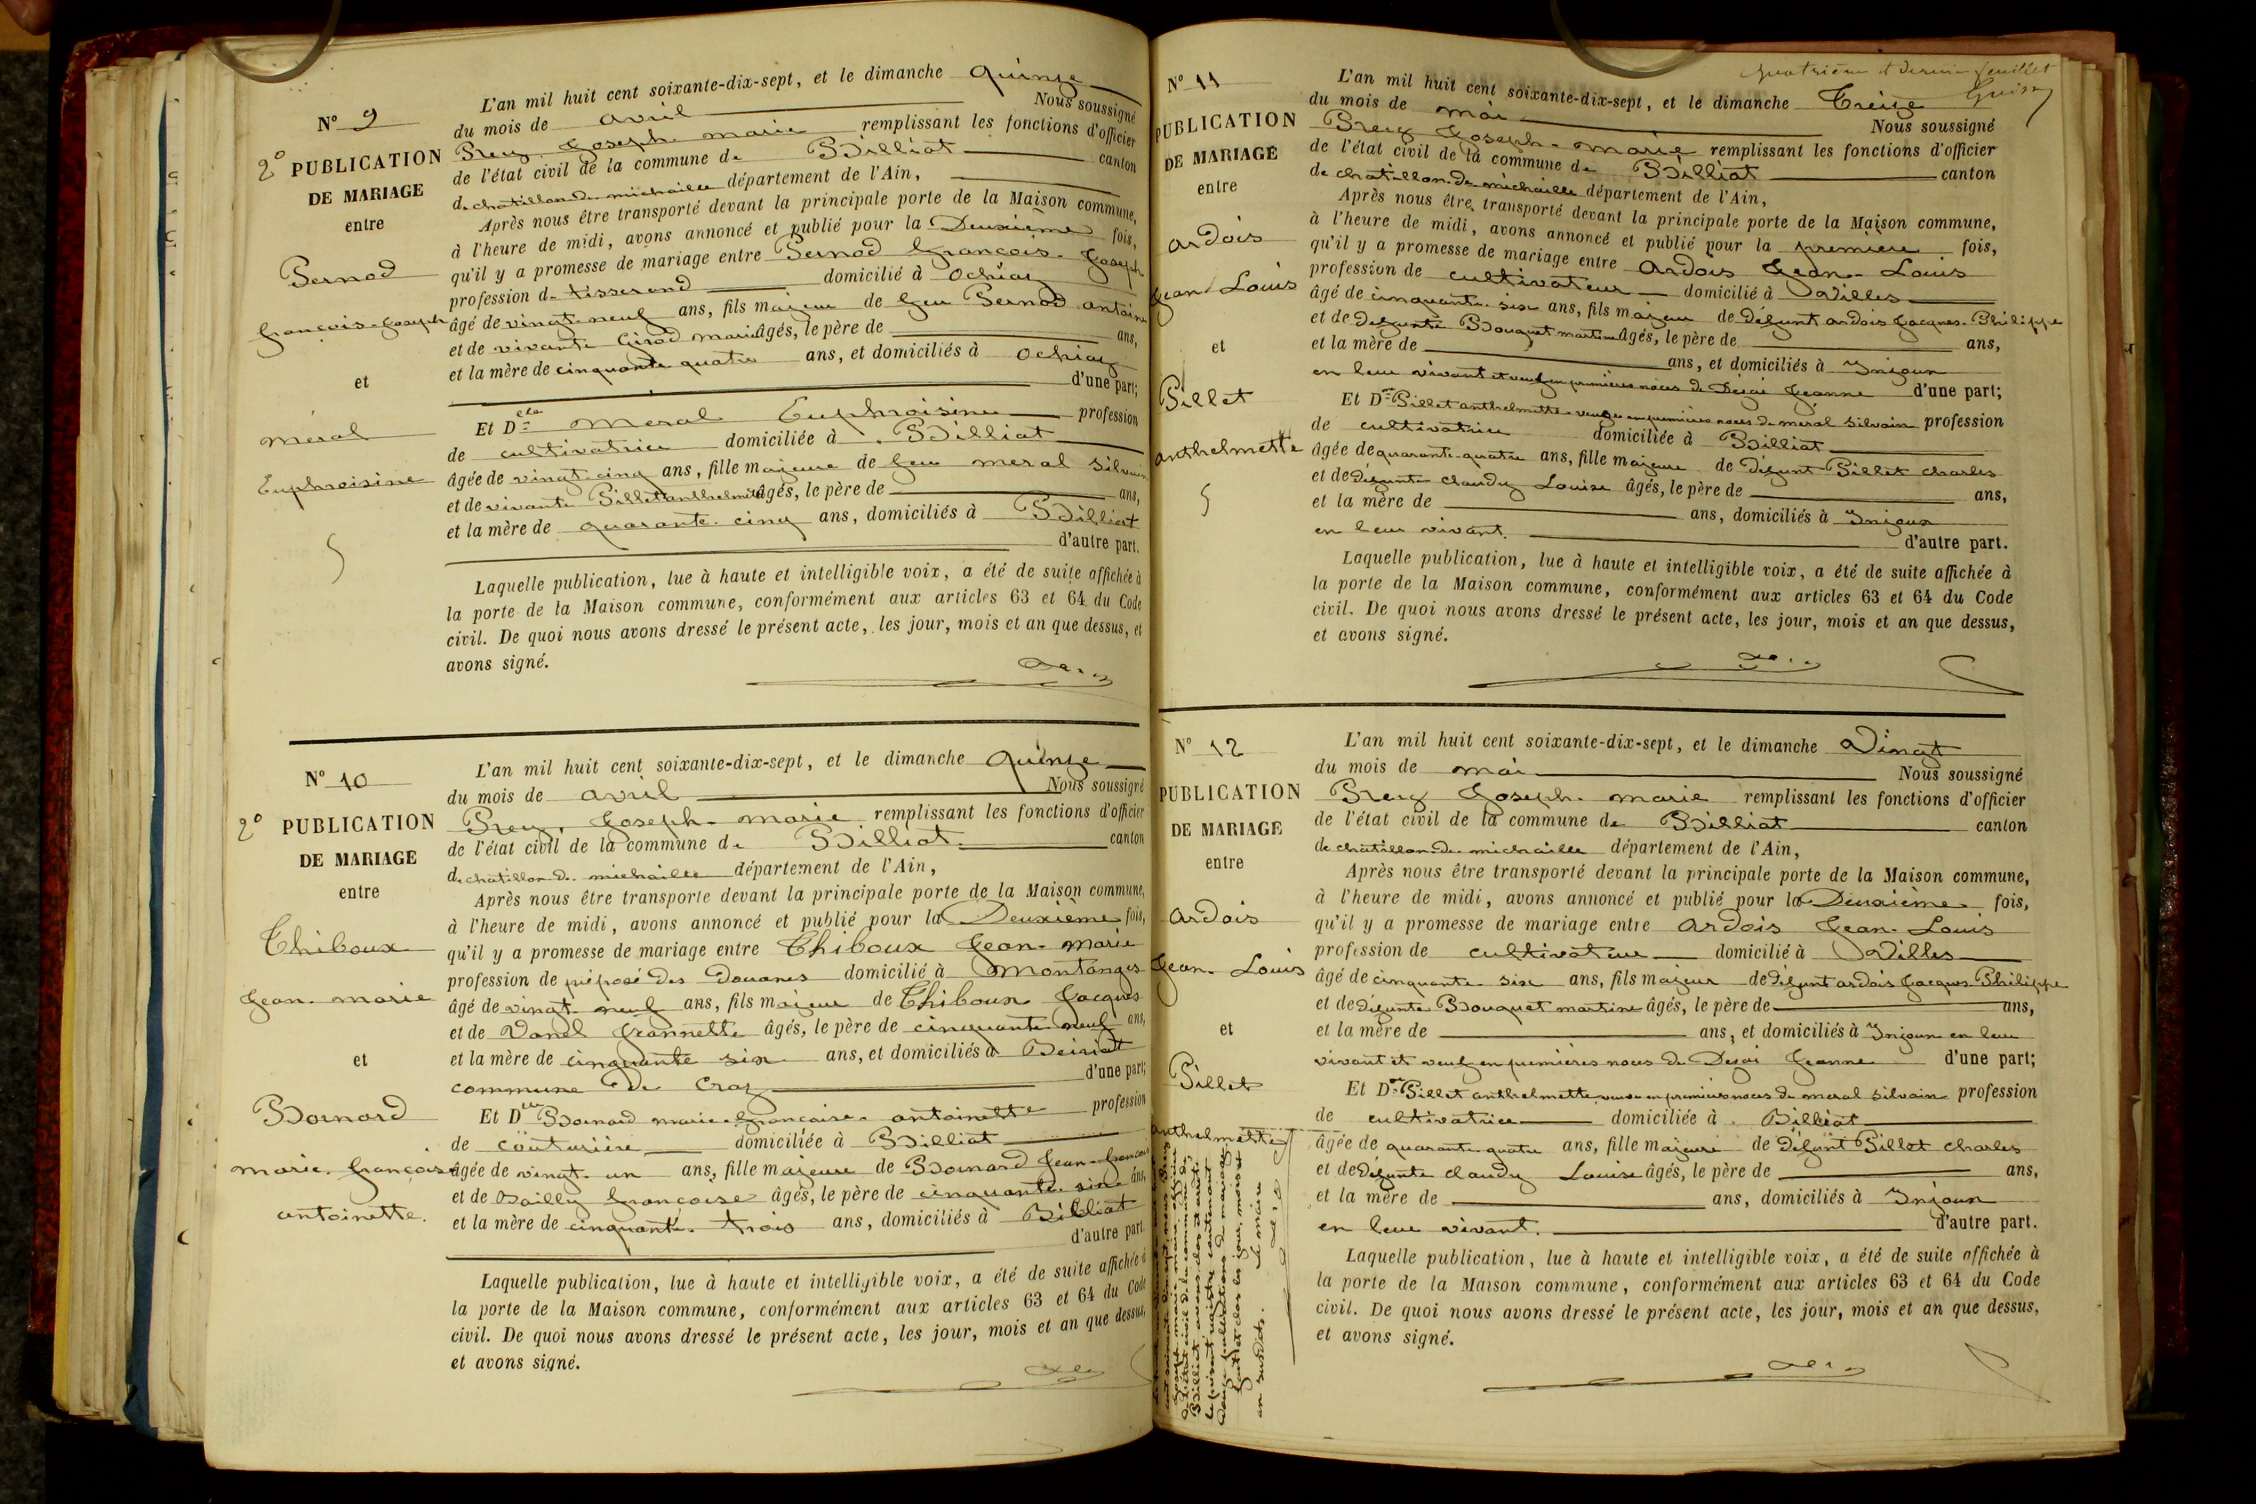 N° 9
2° PUBLICATION
DE MARIAGE
entre
Pernod
françois-Joseph
et
méral
Euphroisine
L'an mil huit cent soixante-dix-sept, et le dimanche quinze
du mois de avril Nous soussigné
Prey Joseph-marie remplissant les fonctions d'officier
de l'état civil de la commune de Billiat canton
de chatillon-de-michaille département de l'Ain,
Après nous être transporté devant la principale porte de la Maison commune,
à l'heure de midi, avons annoncé et publié pour la Deuxième fois,
qu'il y a promesse de mariage entre Pernod françois-Joseph
profession de tisserand domicilié à Ochiaz
âgé de vingt-neuf ans, fils majeur de feu Pernod antoine
et de vivante Girod marie âgés, le père de ans,
et la mère de cinquante quatre ans, et domiciliés à Ochiaz
d'une part;
Et Dlle meral Euphroisine profession
de cultivatrice domiciliée à Billiat
âgée de vingt-cinq ans, fille majeure de feu meral silvain
et de vivante Pillet anthelmette âgés, le père de ans,
et la mère de quarante-cinq ans, domiciliés à Billiat
d'autre part.
Laquelle publication, lue à haute et intelligible voix, a été de suite affichée à
la porte de la Maison commune, conformément aux articles 63 et 64 du Code
civil. De quoi nous avons dressé le présent acte, les jour, mois et an que dessus, et
avons signé.
N° 10
2° PUBLICATION
DE MARIAGE
entre
Thiboux
Jean-marie
et
Bornard
marie-françoise
antoinette.
L'an mil huit cent soixante-dix-sept, et le dimanche quinze
du mois de avril Nous soussigné
Prey, Joseph-marie remplissant les fonctions d'officier
de l'état civil de la commune de Billiat canton
de chatillon-de-michaille département de l'Ain,
Après nous être transporté devant la principale porte de la Maison commune,
à l'heure de midi, avons annoncé et publié pour la Deuxième fois,
qu'il y a promesse de mariage entre Thiboux Jean-marie
profession de préposé des Douanes domicilié à Montanges
âgé de vingt-neuf ans, fils majeur de Thiboux Jacques
et de Vanel Jeannette âgés, le père de cinquante neuf ans,
et la mère de cinquante six ans, et domiciliés à
commune de Craz d'une part;
Et Dlle Bornard marie-françoise-antoinette profession
de couturière domiciliée à Billiat
âgée de vingt-un ans, fille majeure de Bornard Jean-françois
et de Bailly françoise âgés, le père de cinquante-six ans,
et la mère de cinquante-trois ans, domiciliés à Billiat
d'autre part.
Laquelle publication, lue à haute et intelligible voix, a été de suite affichée à
la porte de la Maison commune, conformément aux articles 63 et 64 du Code
civil. De quoi nous avons dressé le présent acte, les jour, mois et an que dessus,
et avons signé.
quatrième et dernier feuillet
N° 11
PUBLICATION
DE MARIAGE
entre
ardois
Jean-Louis
et
Pillet
anthelmette
L'an mil huit cent soixante-dix-sept, et le dimanche Treize
du mois de mai Nous soussigné
Prey Joseph-marie remplissant les fonctions d'officier
de l'état civil de la commune de Billiat canton
de chatillon-de-michaille département de l'Ain,
Après nous être transporté devant la principale porte de la Maison commune,
à l'heure de midi, avons annoncé et publié pour la première fois,
qu'il y a promesse de mariage entre ardois Jean-Louis
profession de cultivateur domicilié à Villes
âgé de cinquante-six ans, fils majeur de défunt ardois Jacques-Philippe
et de défunte Bouquet martine âgés, le père de ans,
et la mère de ans, et domiciliés à Injoux
en leur vivant et veuf en premières noces de Jeanne d'une part;
Et De Pillet anthelmette veuve en premières noces de meral silvain profession
de cultivatrice domiciliée à Billiat
âgée de quarante-quatre ans, fille majeure de défunt Pillet charles
et de défunte claudy Louise âgés, le père de ans,
et la mère de ans, domiciliés à Injoux
en leur vivant. d'autre part.
Laquelle publication, lue à haute et intelligible voix, a été de suite affichée à
la porte de la Maison commune, conformément aux articles 63 et 64 du Code
civil. De quoi nous avons dressé le présent acte, les jour, mois et an que dessus,
et avons signé.
N° 12
PUBLICATION
DE MARIAGE
entre
ardois
Jean-Louis
et
Pillet
anthelmette
L'an mil huit cent soixante-dix-sept, et le dimanche Vingt
du mois de mai Nous soussigné
Prey Joseph-marie remplissant les fonctions d'officier
de l'état civil de la commune de Billiat canton
de chatillon-de-michaille département de l'Ain,
Après nous être transporté devant la principale porte de la Maison commune,
à l'heure de midi, avons annoncé et publié pour la Deuxième fois,
qu'il y a promesse de mariage entre ardois Jean-Louis
profession de cultivateur domicilié à Villes
âgé de cinquante six ans, fils majeur de défunt ardois Jacques-Philippe
et de défunte Bouquet martine âgés, le père de ans,
et la mère de ans, et domiciliés à Injoux en leur
vivant et veuf en premières noces de Jeanne d'une part;
Et De Pillet anthelmette veuve en premières noces de meral silvain profession
de cultivatrice domiciliée à Billiat
âgée de quarante quatre ans, fille majeure de défunt Pillet charles
et de défunte claudy Louise âgés, le père de ans,
et la mère de ans, domiciliés à Injoux
en leur vivant. d'autre part.
Laquelle publication, lue à haute et intelligible voix, a été de suite affichée à
la porte de la Maison commune, conformément aux articles 63 et 64 du Code
civil. De quoi nous avons dressé le présent acte, les jour, mois et an que dessus,
et avons signé.
Joseph-marie maire, officier
de l'état civil de la commune de
Billiat avons clos et arrêté
le présent registre contenant
Douze publications de mariage
fait et clos les jour, mois et
an susdits. Le maire